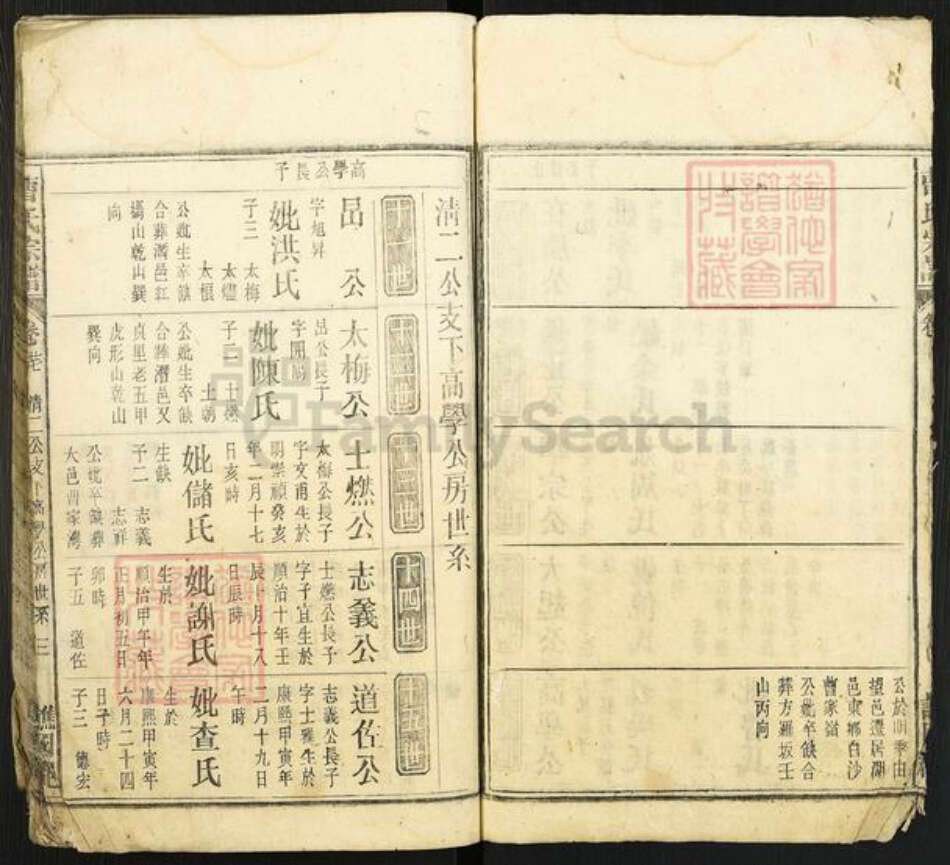 公於明季由
望邑遷居湖
邑東鄉白沙
曹家嶺
公妣卒缺合
葬方羅坂壬
山丙向
清二公支下高學公房世系
高學公長子
昂公
字旭昇
妣洪氏
子三
太梅
太燼
太恨
公妣生卒缺
合葬潛邑紅
山乾山巽
向
太梅公
昂公長子
字開
妣陳氏
子二
士燃
士朝
公妣生卒缺
合葬潛邑又
貞里老五甲
虎形山乾山
巽向
十三世
士燃公
太梅公長子
字文甫生於
明崇禎癸亥
年二月十七
日亥時
妣儲氏
生缺
子二
志義
志祥
公妣卒缺葬
大邑曹家灣
十四世
志義公
士燃公長子
字子宜生於
順治十年壬
辰十月十八
日辰時
妣謝氏
生於
順治甲午年
正月初五日
卯時
子五
道佐
十五世
道佐公
志義公長子
字士雅生於
康熙甲寅年
二月十九日
午時
妣查氏
生於
康熙甲寅年
六月二十四
日子時
子三
德宏
曹氏宗譜
清二公支下高學公房世系
三
FamilySearch